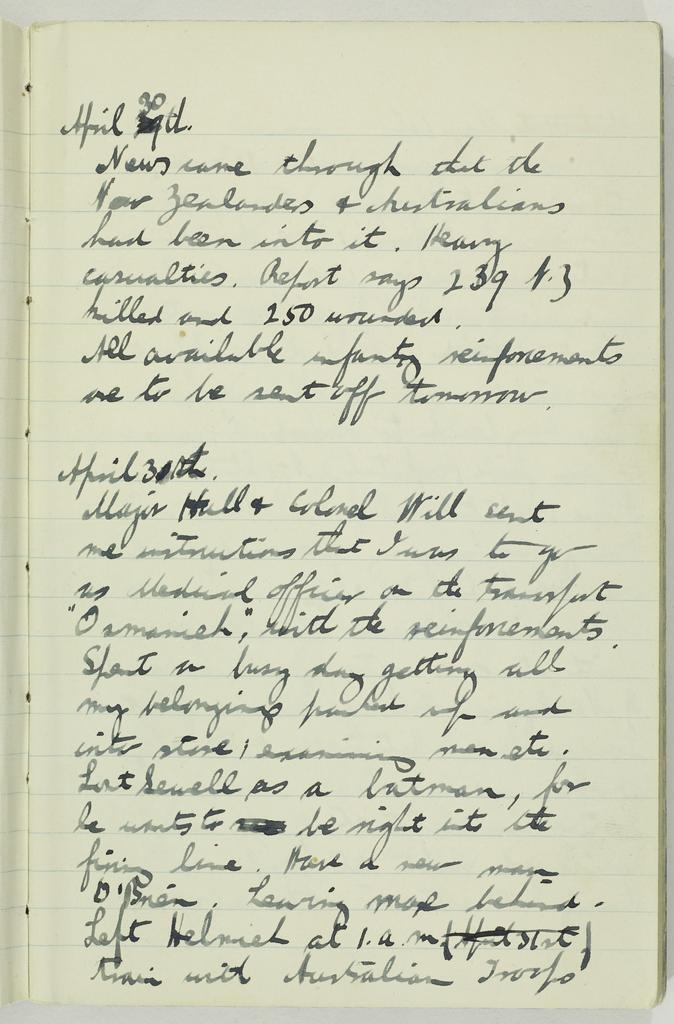 April 30th.
News came through that the
New Zealanders & Australians
had been into it. Heavy
casualties. Report says 239 N.Z
killed and 250 wounded.
All available infantry reinforcements
are to be sent off tomorrow.
April 30th.
Major Hall & Colonel Will sent
me instructions that I was to go
as Medical officer on the transport
"Osmanieh", with the reinforcements.
Spent a busy day getting all
my belongings packed up and
into store; examining men etc.
Lost Sewell as a batman, for
he wants to be right into the
firing line. Have a new man
O'Brien. Leaving behind.
Left Helmieh at 1. a.m (April 31st)
train with Australian Troops